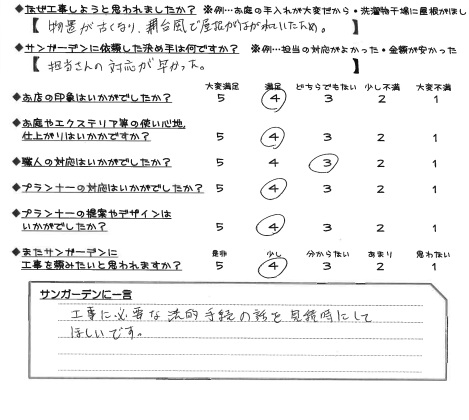 ◆なぜ工事しようと思われましたか? ※例…お庭の手入れが大変だから・洗濯物干場に屋根がほし
【 物置が古くなり、朝台風で屋根がはがれていたため。 】
◆サンガーデンに依頼した決め手は何ですか? ※例…担当の対応がよかった・金額が安かった
【 担当さんの対応が早かった。 】
大変満足 満足 どちらでもない 少し不満 大変不満
◆お店の印象はいかがでしたか? 5 4 3 2 1
◆お庭やエクステリア等の使い心地,
仕上がりはいかかですか? 5 4 3 2 1
◆職人の対応はいかがでしたか? 5 4 3 2 1
◆プランナーの対応はいかがでしたか? 5 4 3 2 1
◆プランナーの提案やデザインは
いかがでしたか? 5 4 3 2 1
是非 少し 分からない あまり 思わない
◆またサンガーデンに
工事を頼みたいと思われますか? 5 4 3 2 1
サンガーデンに一言
工事に必要な法的手続の話を見積時にして
ほしいです。